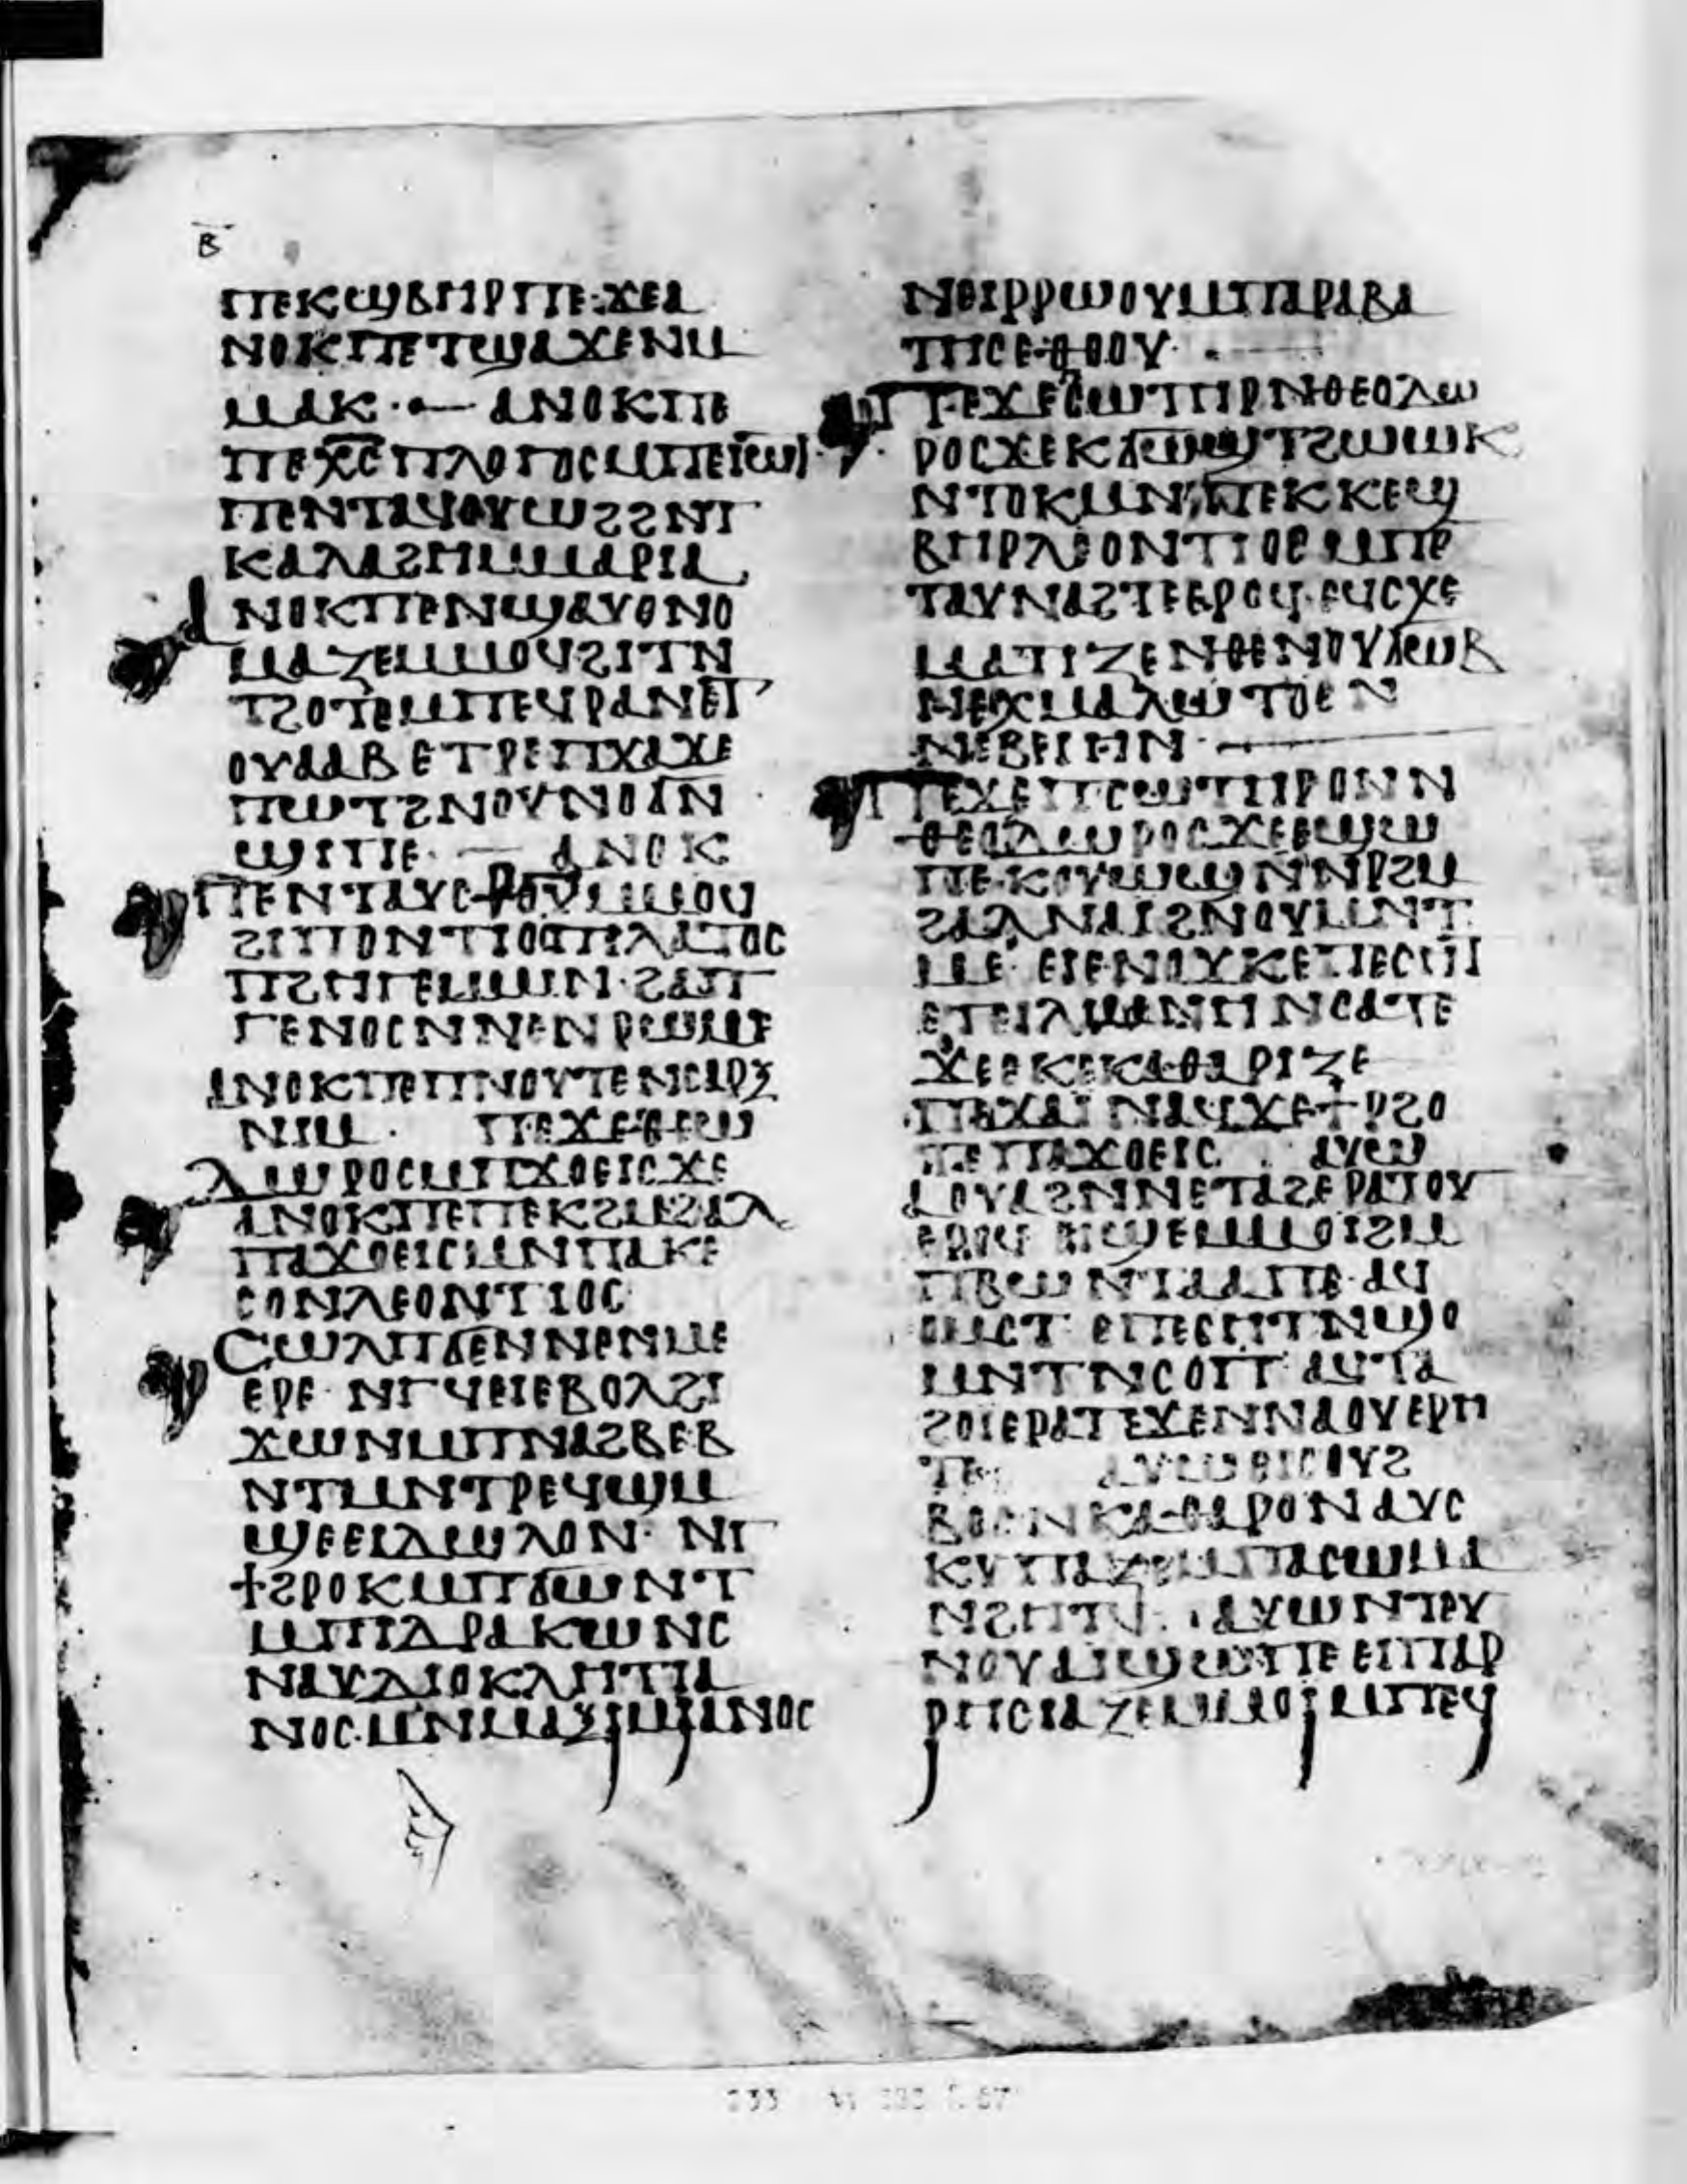 ⲃ̅
ⲡⲉⲕϣⲃⲏⲣⲡⲉ·ϫⲉⲁ
ⲛⲟⲕⲡⲉⲧϣⲁϫⲉⲛⲙ
ⲙⲁⲕ·— ⲁⲛⲟⲕⲡⲉ
ⲡⲉⲭ̅ⲥ̅ⲡⲗⲟⲅⲟⲥⲙⲡⲉⲓⲱⲧ
ⲡⲉⲛⲧⲁϥⲟⲩⲱϩϩⲛⲧ
ⲕⲁⲗⲁϩⲏⲙⲙⲁⲣⲓⲁ
ⲁⲛⲟⲕⲡⲉⲛϣⲁⲩⲟⲛⲟ
ⲙⲁⲍⲉⲙⲙⲟϥϩⲓⲧⲛ
ⲧϩⲟⲧⲉⲙⲡⲉϥⲣⲁⲛⲉⲧ
ⲟⲩⲁⲁⲃⲉⲧⲣⲉⲡϫⲁϫⲉ
ⲡⲱⲧϩⲛⲟⲩⲛⲟϭⲛ
ϣⲓⲡⲉ·— ⲁⲛⲟⲕ
ⲡⲉⲛⲧⲁⲩⲥⲣⲟⲩⲙⲙⲟϥ
ϩⲓⲡⲟⲛⲧⲓⲟⲥⲡⲓⲗⲁⲧⲟⲥ
ⲡϩⲏⲅⲉⲙⲱⲛ·ϩⲁⲡ
ⲅⲉⲛⲟⲥⲛⲛⲉⲛⲣⲱⲙⲉ
ⲁⲛⲟⲕⲡⲉⲡⲛⲟⲩⲧⲉⲛⲥⲁⲣⲝ
ⲛⲓⲙ· ⲡⲉϫⲉⲑⲉⲱ
ⲇⲱⲣⲟⲥⲙⲡϫⲟⲉⲓⲥϫⲉ
ⲁⲛⲟⲕⲡⲉⲡⲉⲕϩⲙϩⲁⲗ
ⲡⲁϫⲟⲉⲓⲥⲙⲛⲡⲁⲕⲉ
ⲥⲟⲛⲗⲉⲟⲛⲧⲓⲟⲥ
ⲥⲱⲗⲡϭⲉⲛⲛⲉⲛⲙⲉ
ⲉⲣⲉ·ⲛⲅϥⲉⲓⲉⲃⲟⲗϩⲓ
ϫⲱⲛⲙⲡⲛⲁϩⲃⲉⲃ
ⲛⲧⲙⲛⲧⲣⲉϥϣⲙ
ϣⲉⲉⲓⲇⲱⲗⲟⲛ·ⲛⲅ
ϯϩⲣⲟⲕⲙⲡϭⲱⲛⲧ
ⲙⲡⲓⲇⲣⲁⲕⲱⲛⲥ
ⲛⲁⲩⲇⲓⲟⲕⲗⲏⲧⲓⲁ
ⲛⲟⲥ·ⲙⲛⲙⲁⲝⲓⲙⲓⲁⲛⲟⲥ
ⲛⲟⲓⲣⲣⲱⲟⲩⲙⲡⲁⲣⲁⲃⲁ
ⲧⲏⲥⲉⲑⲟⲟⲩ·—
ⲡⲉϫⲉⲥⲱⲧⲏⲣⲛⲑⲉⲟⲇⲱ
ⲣⲟⲥϫⲉⲕϭⲱϣⲧϩⲱⲱⲕ
ⲛⲧⲟⲕⲙⲛⲡⲉⲕⲕⲉϣ
ⲃⲏⲣⲗⲉⲟⲛⲧⲓⲟⲥⲙⲡⲉ
ⲧⲁⲩⲛⲁϩⲧⲉⲉⲣⲟϥ·ⲉϥⲥⲭⲉ
ⲙⲁⲧⲓⲍⲉⲛⲑⲉⲛⲟⲩϩⲱⲃ
ⲛⲉⲭⲙⲁⲗⲱⲧⲟⲥⲛ
ⲛⲉⲃⲉⲓⲏⲛ·—
ⲡⲉϫⲉⲡⲥⲱⲧⲏⲣⲟⲛⲛ
ⲑⲉⲟⲇⲱⲣⲟⲥϫⲉⲉϣⲱ
ⲡⲉⲕⲟⲩⲱϣⲛⲛⲣϩⲙ
ϩⲁⲗⲛⲁⲓϩⲛⲟⲩⲙⲛⲧ
ⲙⲉ·ⲉⲓⲉⲛⲟϫⲕⲉⲡⲉⲥⲏⲧ
ⲉⲧⲉⲓⲗⲩⲙⲛⲏⲛⲥⲁⲧⲉ
ϫⲉⲉⲕⲉⲕⲁⲑⲁⲣⲓⲍⲉ
ⲡⲉϫⲁϊⲛⲁϥϫⲉϯⲣϩⲟ
ⲡⲉⲡⲁϫⲟⲉⲓⲥ· ⲁⲩⲱ
ⲁⲟⲩⲁϩⲛⲛⲉⲧⲁϩⲉⲣⲁⲧⲟⲩ
ⲉⲣⲟϥ ϣⲉⲙⲙⲟⲓϩⲙ
ⲡⲃⲱⲛⲧⲁⲁⲡⲉ·ⲁϥ
ⲟⲙⲥⲧ ⲉⲡⲉⲥⲏⲧⲛϣⲟ
ⲙⲛⲧⲛⲥⲟⲡ ⲁϥⲧⲁ
ϩⲟⲓⲉⲣⲁⲧϫⲉⲛⲛⲁⲟⲩⲉⲣⲏ
ⲧⲉ· ⲁⲩⲱ
ⲃⲟⲥⲛⲕⲁⲑⲁⲣⲟⲛⲁⲩⲥ
ⲕⲩⲡⲁⲍⲉⲙⲡⲁⲥⲱⲙⲁ
ⲛϩⲏⲧϥ·ⲁⲩⲱⲛⲧⲉⲩ
ⲛⲟⲩⲁⲓϣⲱⲡⲉⲉⲓⲡⲁⲣ
ⲣⲏⲥⲓⲁⲍⲉⲙⲙⲟⲓⲙⲡⲉϥ